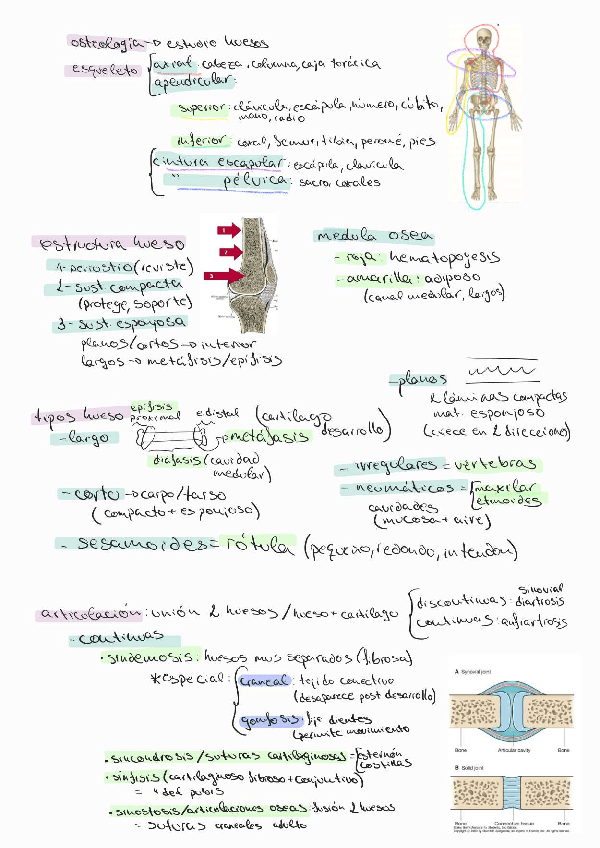 osteología → estudio huesos
esqueleto
axial: cabeza, columna, caja torácica
apendicular:
superior: clávicula, escápula, húmero, cúbito,
mano, radio
inferior: coxal, femur, tibia, peroné, pies
cintura escapular: escápila, clavícula
" pélvica: sacro, coxales
estructura hueso
1-periostio (reviste)
2-sust. compacta
(protege, soporte)
3-sust. esponjosa
planos/cortos → interior
largos → metáfisis/epífisis
1
2
3
medula osea
- roja: hematopoyesis
- amarilla: adiposo
(canal medular, largos)
- planos
2 láminas compactas
mat. esponjoso
(crece en 2 direcciones)
tipos hueso
epífisis
proximal
e.distal
(cartílago
desarrollo)
- largo
metáfasis
diáfasis (cavidad
medular)
- corto → carpo/tarso
(compacto + esponjoso)
- irregulares = vértebras
- neumáticos = maxilar
etmoides
cavidades
(mucosa + aire)
- sesamoides = rótula (pequeño, redondo, in tendón)
articulación: unión 2 huesos/hueso + cartílago
sinovial
discontinuas: diartrosis
continuas: anfiartrosis
- continuas
• sindemosis: huesos mus separados (fibrosa)
*especial:
craneal: tejido conectivo
(desaparece post desarrollo)
gonfosis: fije dientes
(permite movimiento)
• sincondrosis/suturas cartilaginosas = esternón
costillas
• sínfisis (cartilaginoso fibroso + conjuntivo)
= " del pubis
• sinostosis/articulaciones oseas: fusión 2 huesos
= suturas craneales adulto
A Synovial joint
Bone
Articular cavity
Bone
B Solid joint
Bone
Connective tissue
Bone